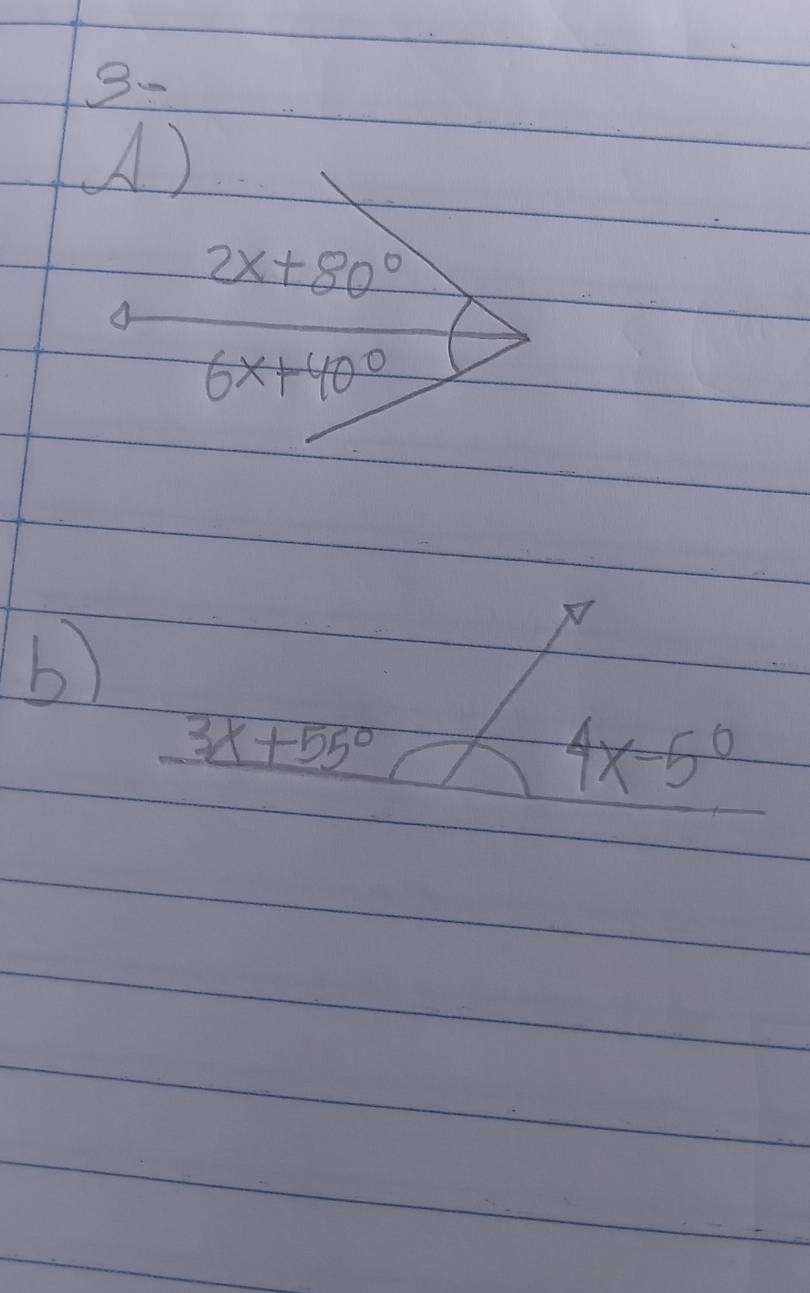 3-
A)
2x+80°
6x+40°
b)
3x+55° 4x-5°